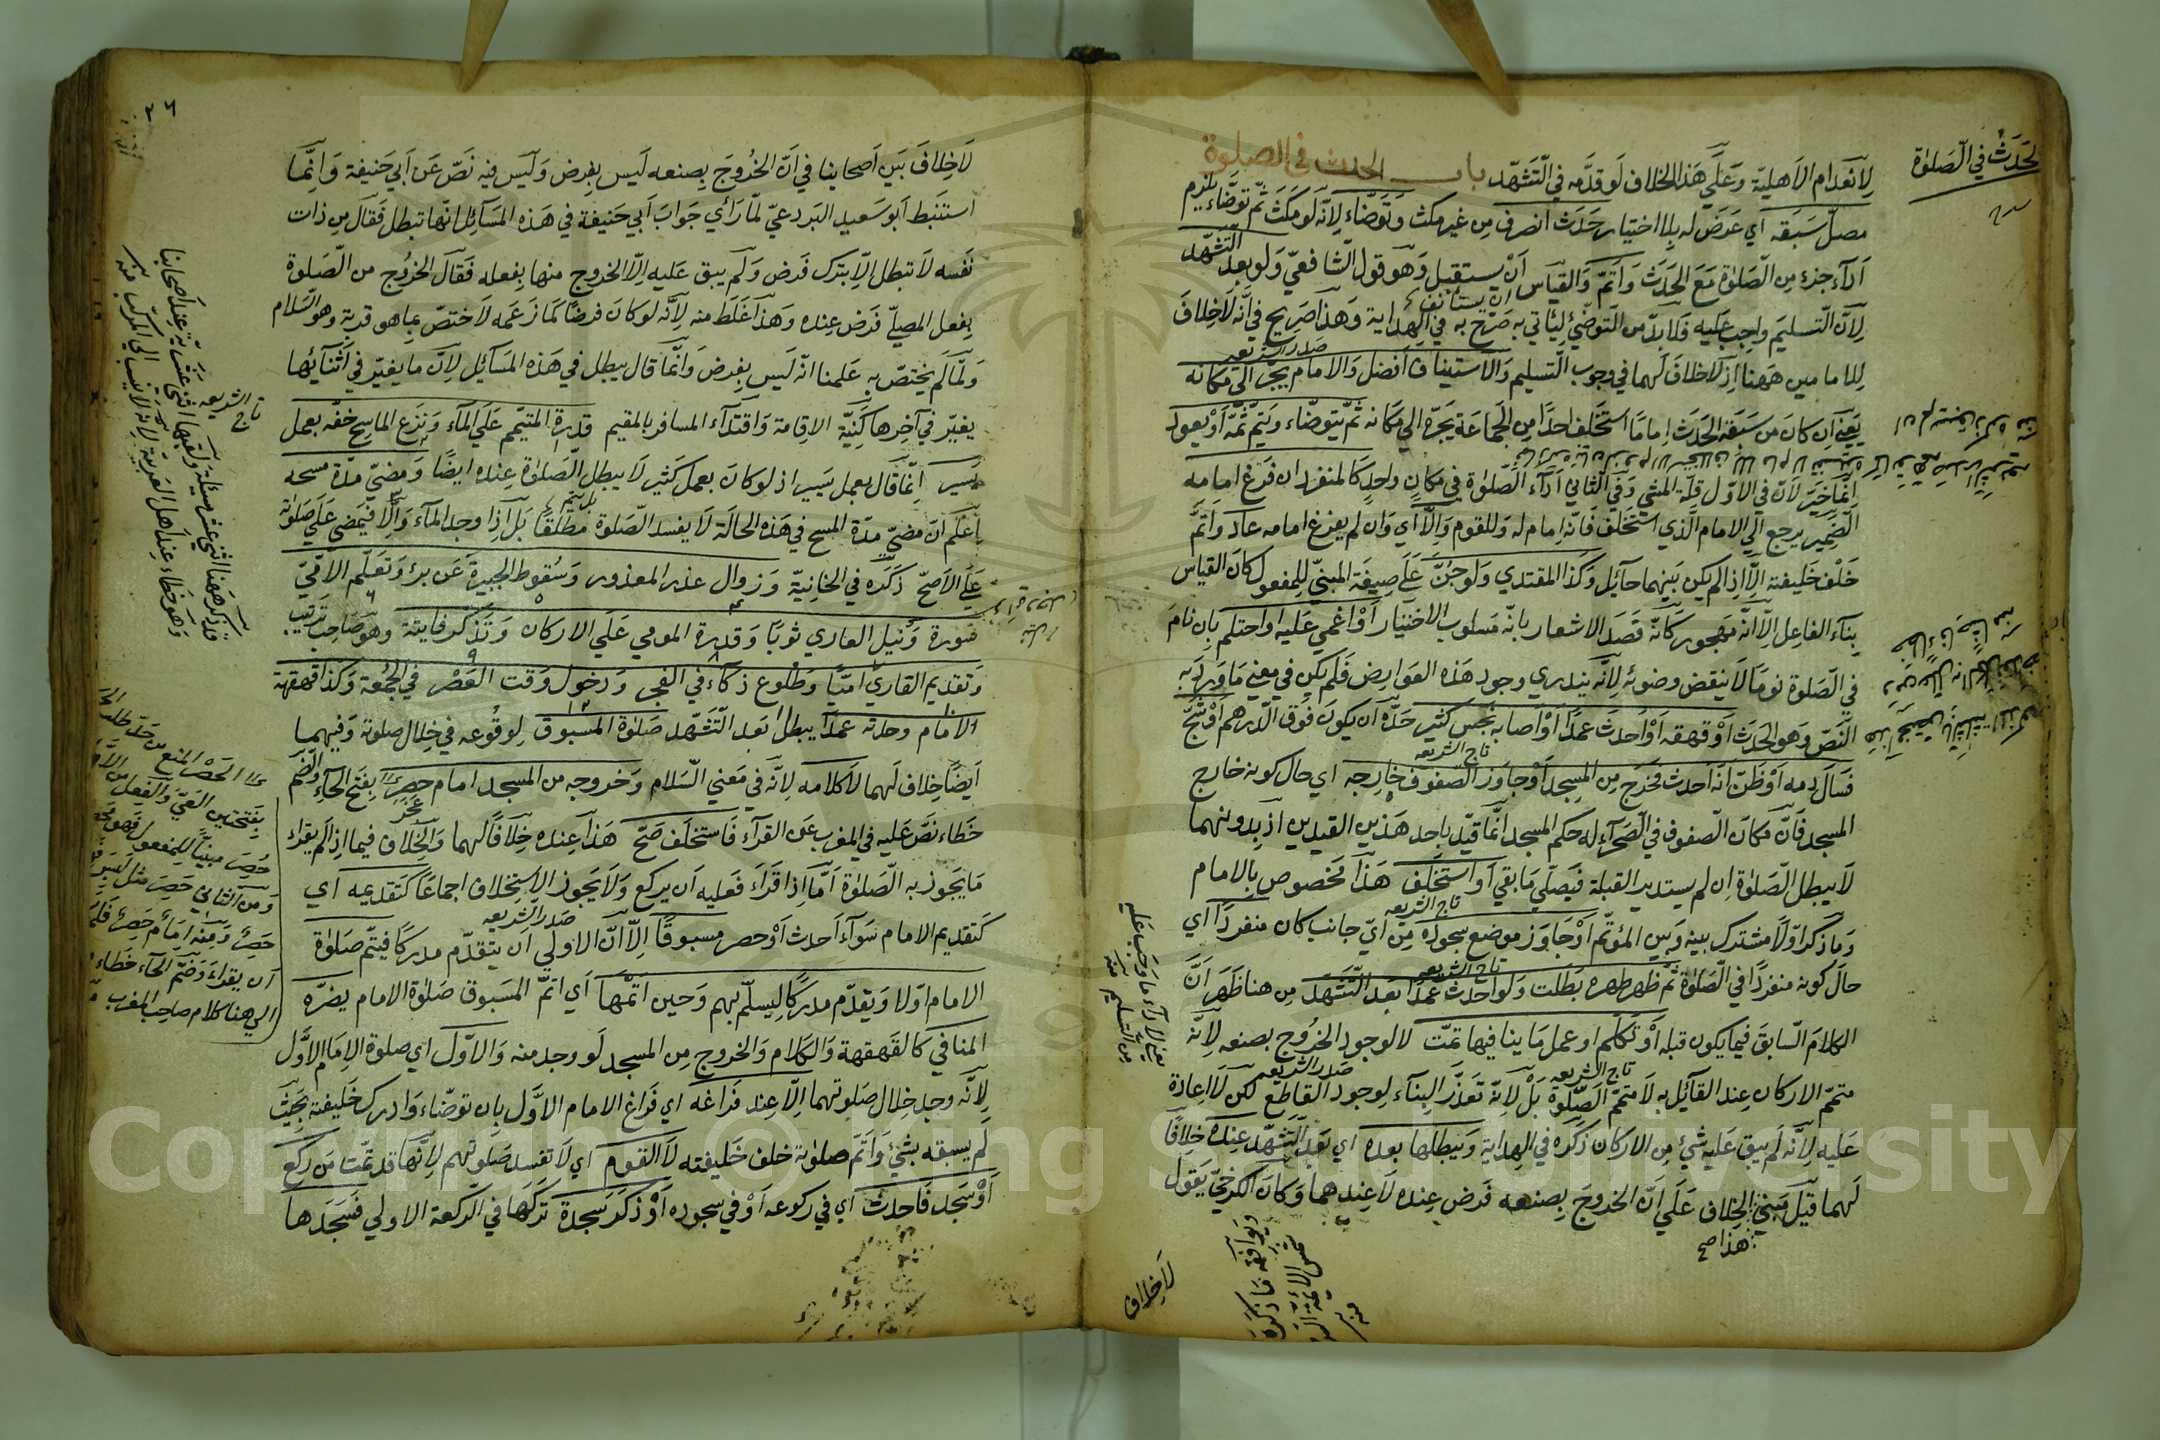 الحدث في الصلوة
لانعدام الاهلية وعلى هذا الخلاف لو قدمه في التشهد باب الحدث في الصلوة
مصل سبقه اي عرض له بلا اختيار حدث انصرف من غير مكث وتوضاء لانه لو مكث ثم توضاء يلزم
اداء جزء من الصلوة مع الحدث واتم والقياس ان يستقبل وهو قول الشافعي ولو بعد التشهد
ان يستأنف
لان التسليم واجب عليه فلا بد من التوضئ ليأتي به صرح به في الهداية وهذا صريح في انه لا خلاف
للامامين ههنا اذ لا خلاف لهما في وجوب التسليم والاستيناف افضل والامام يجر الى مكانه
صدر الشريعه
يعني ان كان من سبقه الحدث اماما استخلف احدا من الجماعة يجره الى مكانه ثم يتوضاء ويتم ثمه او يعود
انما خير لان في الاول قلة المشي وفي الثاني اداء الصلوة في مكان واحد كالمنفرد ان فرغ امامه
الضمير يرجع الى الامام الذي استخلف فانه امام له وللقوم والا اي وان لم يفرغ امامه عاد واتم
خلف خليفته الا اذا لم يكن بينهما حائل وكذا المقتدي ولو جن على صيغة المبني للمفعول كان القياس
بناء الفاعل الا انه مهجور كانه قصد الاشعار بانه مسلوب الاختيار او اغمي عليه او احتلم بان نام
في الصلوة نوما لا ينقض وضوئه لانه يندري وجود هذه العوارض فلم يكن في معنى ما ورد به
النص وهو الحدث او قهقهه او احدث عمدا او اصابه نجس كثير حده ان يكون فوق الدرهم او شج
فسال دمه او ظن انه احدث فخرج من المسجد او جاوز الصفوف خارجه اي حال كونه خارج
تاج الشريعه
المسجد فان مكان الصفوف في الصحراء له حكم المسجد انما قيد باحد هذين القيدين اذ بدونهما
لا يبطل الصلوة ان لم يستدبر القبلة فيصلي ما بقي او استخلف هذا مخصوص بالامام
وما ذكر اولا مشترك بينه وبين المؤتم او جاوز موضع سجوده من اي جانب كان منفردا اي
تاج الشريعه
حال كونه منفردا في الصلوة ثم ظهر طهره بطلت ولو احدث عمدا بعد التشهد من هنا ظهر ان
تاج الشريعه
الكلام السابق فيما يكون قبله او تكلم او عمل ما ينافيها تمت لا لوجود الخروج بصنعه لانه
متمم الاركان عند القائل به لا متمم الصلوة بل لانه تعذر البناء لوجود القاطع لكن لا اعادة
تاج الشريعه صدر الشريعه
عليه لانه لم يبق عليه شئ من الاركان ذكره في الهداية ويبطلها بعده اي بعد التشهد عنده خلافا
لهما قيل مبنى الخلاف على ان الخروج بصنعه فرض عنده لا عندهما وكان الكرخي يقول
هذا صح
يعني لاداء ما وجب عليه
من التسليم منه
لا خلاف
٢٦
لا خلاف بين اصحابنا في ان الخروج بصنعه ليس بفرض وليس فيه نص عن ابي حنيفة وانما
استنبط ابو سعيد البردعي لما رأي جواب ابي حنيفة في هذه المسائل انها تبطل فقال من ذات
نفسه لا تبطل الا بترك فرض ولم يبق عليه الا الخروج منها بفعله فقال الخروج من الصلوة
بفعل المصلي فرض عنده وهذا غلط منه لانه لو كان فرضا كما زعمه لاختص بما هو قربة وهو السلام
ولما لم يختص به علمنا انه ليس بفرض وانما قال يبطل في هذه المسائل لان ما يغير في اثنائها
يغير في آخرها كنية الاقامة واقتداء المسافر بالمقيم قدرة المتيمم على الماء ونزع الماسح خفه بعمل
يسير انما قال بعمل يسير اذ لو كان بعمل كثير لا يبطل الصلوة عنده ايضا ومضي مدة مسحه
اعلم ان مضي مدة المسح في هذه الحالة لا يفسد الصلوة مطلقا بل اذا وجد الماء والا فيمضي على صلوته
على الاصح ذكره في الخانية وزوال عذر المعذور وسقوط الجبيرة عن برء وتعلم الامي
سورة ونيل العاري ثوبا وقدرة المومي على الاركان وتذكر فايتة وهو صاحب ترتيب
وتقديم القارئ اميا وطلوع ذكاء في الفجر ودخول وقت العصر في الجمعة وكذا قهقهة
الامام وحدثه عمدا يبطل بعد التشهد صلوة المسبوق لوقوعه في خلال صلوته وفيهما
ايضا خلاف لهما لا كلامه لانه في معنى السلام وخروجه من المسجد امام حصر بفتح الحاء والضم
خطاء نص عليه في المغرب عن القرآءة فاستخلف صح هذا عنده خلافا لهما والخلاف فيما اذا لم يقراء
ما يجوز به الصلوة اما اذا قراء فعليه ان يركع ولا يجوز الاستخلاف اجماعا كتقديمه اي
كتقديم الامام سواء احدث او حصر مسبوقا الا ان الاولى ان يتقدم مدركا فيتم صلوة
صدر الشريعه
الامام اولا ويقدم مدركا ليسلم بهم وحين اتمها اي اتم المسبوق صلوة الامام يضره
المنافي كالقهقهة والكلام والخروج من المسجد لو وجد منه والاول اي صلوة الامام الاول
لانه وجد خلال صلوتهما الا عند فراغه اي فراغ الامام الاول بان توضاء وادرك خليفته بحيث
لم يسبقه بشئ واتم صلوته خلف خليفته لا القوم اي لا تفسد صلوتهم لانها قد تمت من ركع
او سجد فاحدث اي في ركوعه او في سجوده او ذكر سجدة تركها في الركعة الاولى فسجدها
قد ذكر ههنا اثنى عشر مسئلة ولقبها اثنا عشرية عند اصحابنا
وهو خطاء عند اهل العربية لانه لا ينسب الى المركب منه
تاج الشريعه